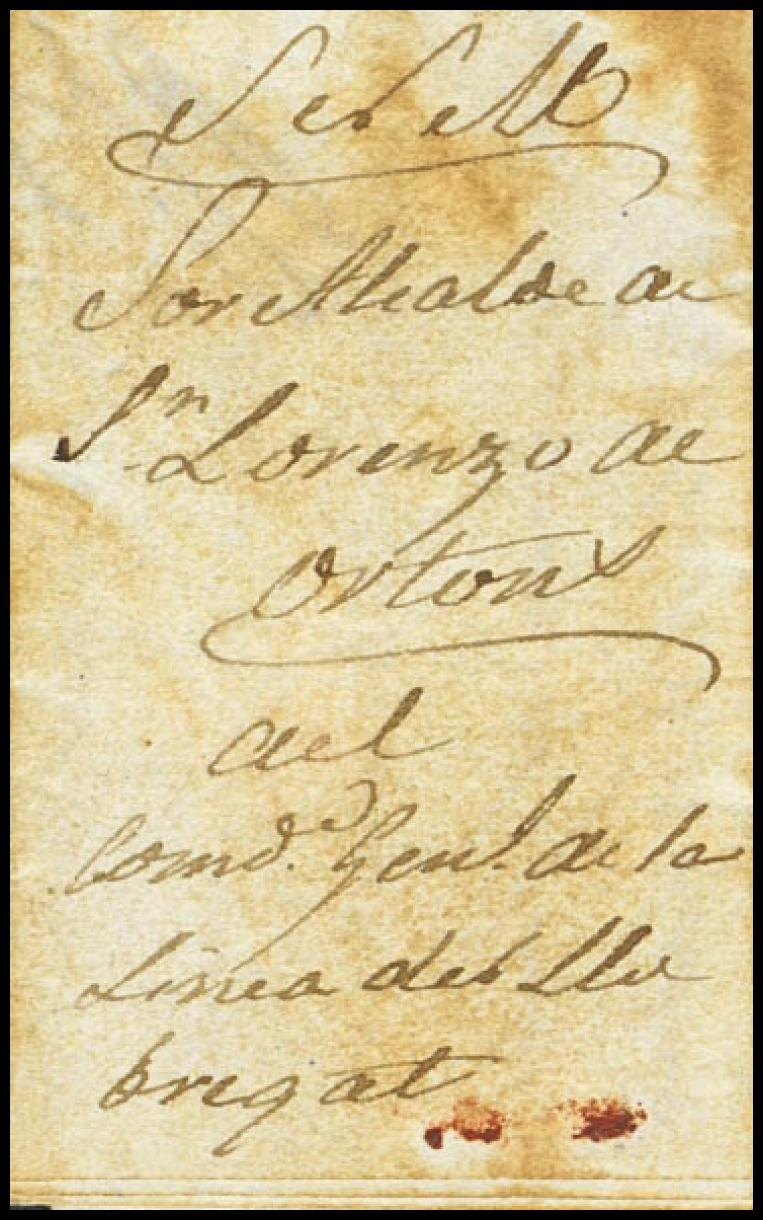 S. del M.
Sor Alcalde de
Sn Lorenzo de
Ortons
del
Comd.e Genl. de la
Linea del Llo
bregat